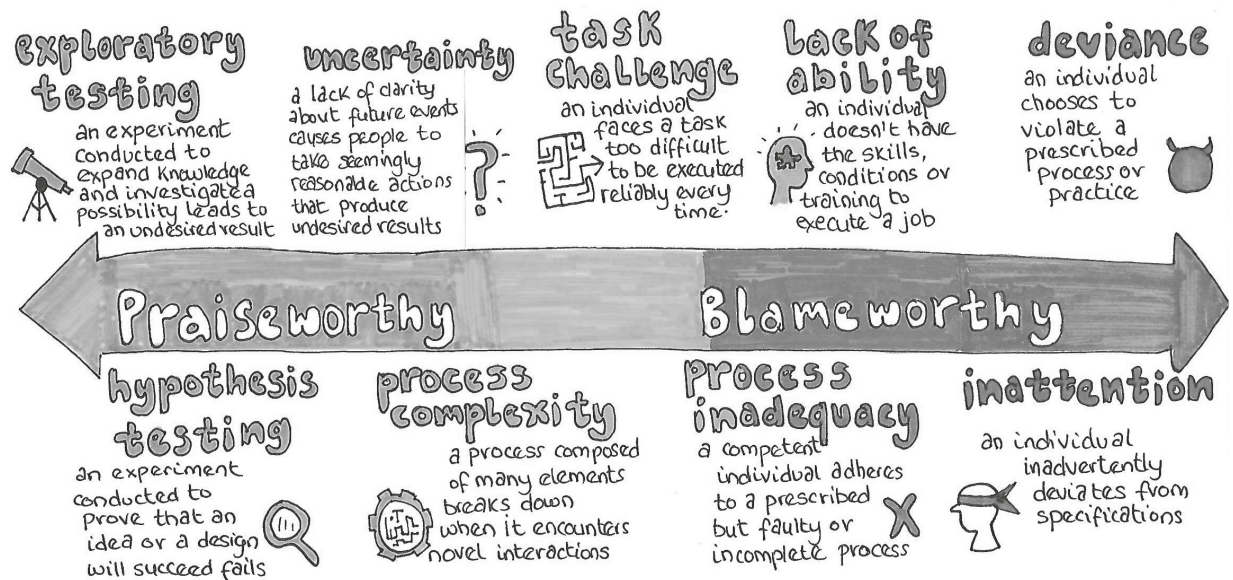 exploratory
testing
an experiment
conducted to
expand knowledge
and investigate a
possibility leads to
an undesired result
uncertainty
a lack of clarity
about future events
causes people to
take seemingly
reasonable actions
that produce
undesired results
?
task
challenge
an individual
faces a task
too difficult
to be executed
reliably every
time.
Lack of
ability
an individual
doesn't have
the skills,
conditions or
training to
execute a job
deviance
an individual
chooses to
violate a
prescribed
process or
practice
Praiseworthy
Blameworthy
hypothesis
testing
an experiment
conducted to
prove that an
idea or a design
will succeed fails
process
complexity
a process composed
of many elements
breaks down
when it encounters
novel interactions
process
inadequacy
a competent
individual adheres
to a prescribed
but faulty or
incomplete process
inattention
an individual
inadvertently
deviates from
specifications